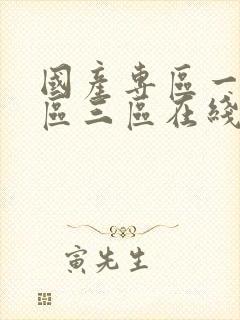 國產專區一
區三區在綫
寅先生